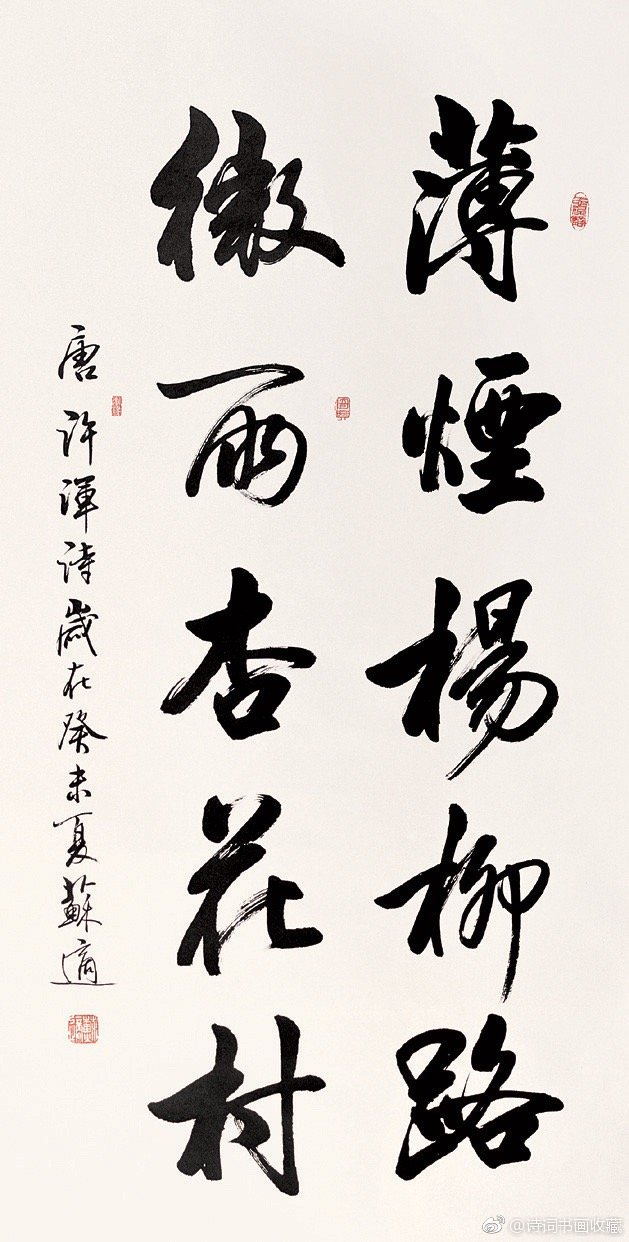 薄煙楊柳路
微雨杏花村
唐許渾詩歲在癸未夏蘇適
@诗词书画收藏